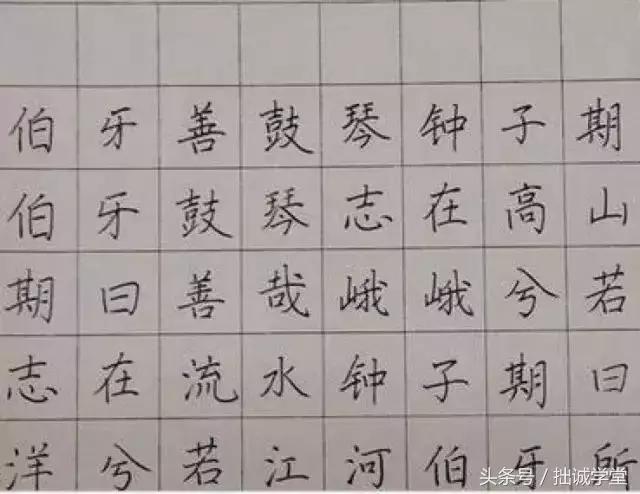 伯牙善鼓琴钟子期
伯牙鼓琴志在高山
期曰善哉峨峨兮若
志在流水钟子期曰
洋兮若江河伯牙所
头条号／拙诚学堂